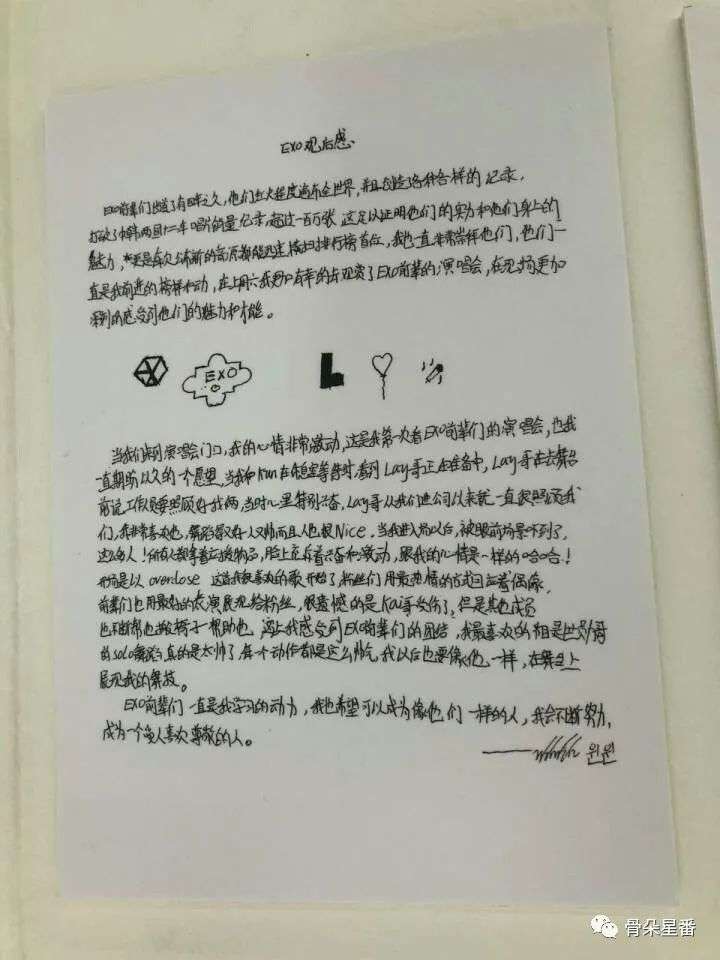 EXO观后感
EXO前辈们出道了有四年之久，他们红火程度遍布全世界，并且创造了各种各样的记录，
打破了中韩两国十二年唱片销量纪录，超过一百万张 这足以证明他们的实力和他们身上的
魅力，更是每次公布新的音源都能迅速横扫排行榜首位，我也一直非常崇拜他们，他们一
直是我前进的榜样和动，在上周六我更加有幸的去观赏了EXO前辈的演唱会，在现场更加
深刻的感受到他们的魅力和才能。
EXO
L
当我们来到演唱会门口，我的心情非常激动，这是我第一次看EXO前辈们的演唱会，也我
一直期盼以久的一个愿望，当我和Kun在休息室等待时，看到Lay哥正在准备中，Lay哥在去舞台
前说工作人员要照顾好我俩，当时心里特别兴奋，Lay哥从我们进公司以来就一直很照顾我
们，我非常喜欢他，舞蹈又好人又帅而且人也很Nice。当我进入场以后，被眼前场景吓到了，
这么多人！所有人都拿着应援物品，脸上充斥着兴奋和激动，跟我的心情是一样的哈哈！
开场是以overdose 这首我很喜欢的歌开始了，粉丝们用最热情的方式回应着偶像，
前辈们也用最好的表演展现给粉丝，很遗憾的是Kai哥受伤了，但是其他成员
也不断帮他搬椅子帮助他，这让我感受到EXO前辈们的团结，我最喜欢的是世勋哥
的solo舞蹈，真的是太帅了，每一个动作都是这么帅气，我以后也要像他一样，在舞台上
展现我的舞技。
EXO前辈们一直是我学习的动力，我也希望可以成为像他们一样的人，我会不断努力，
成为一个负人喜欢尊敬的人。
윈윈
骨朵星番